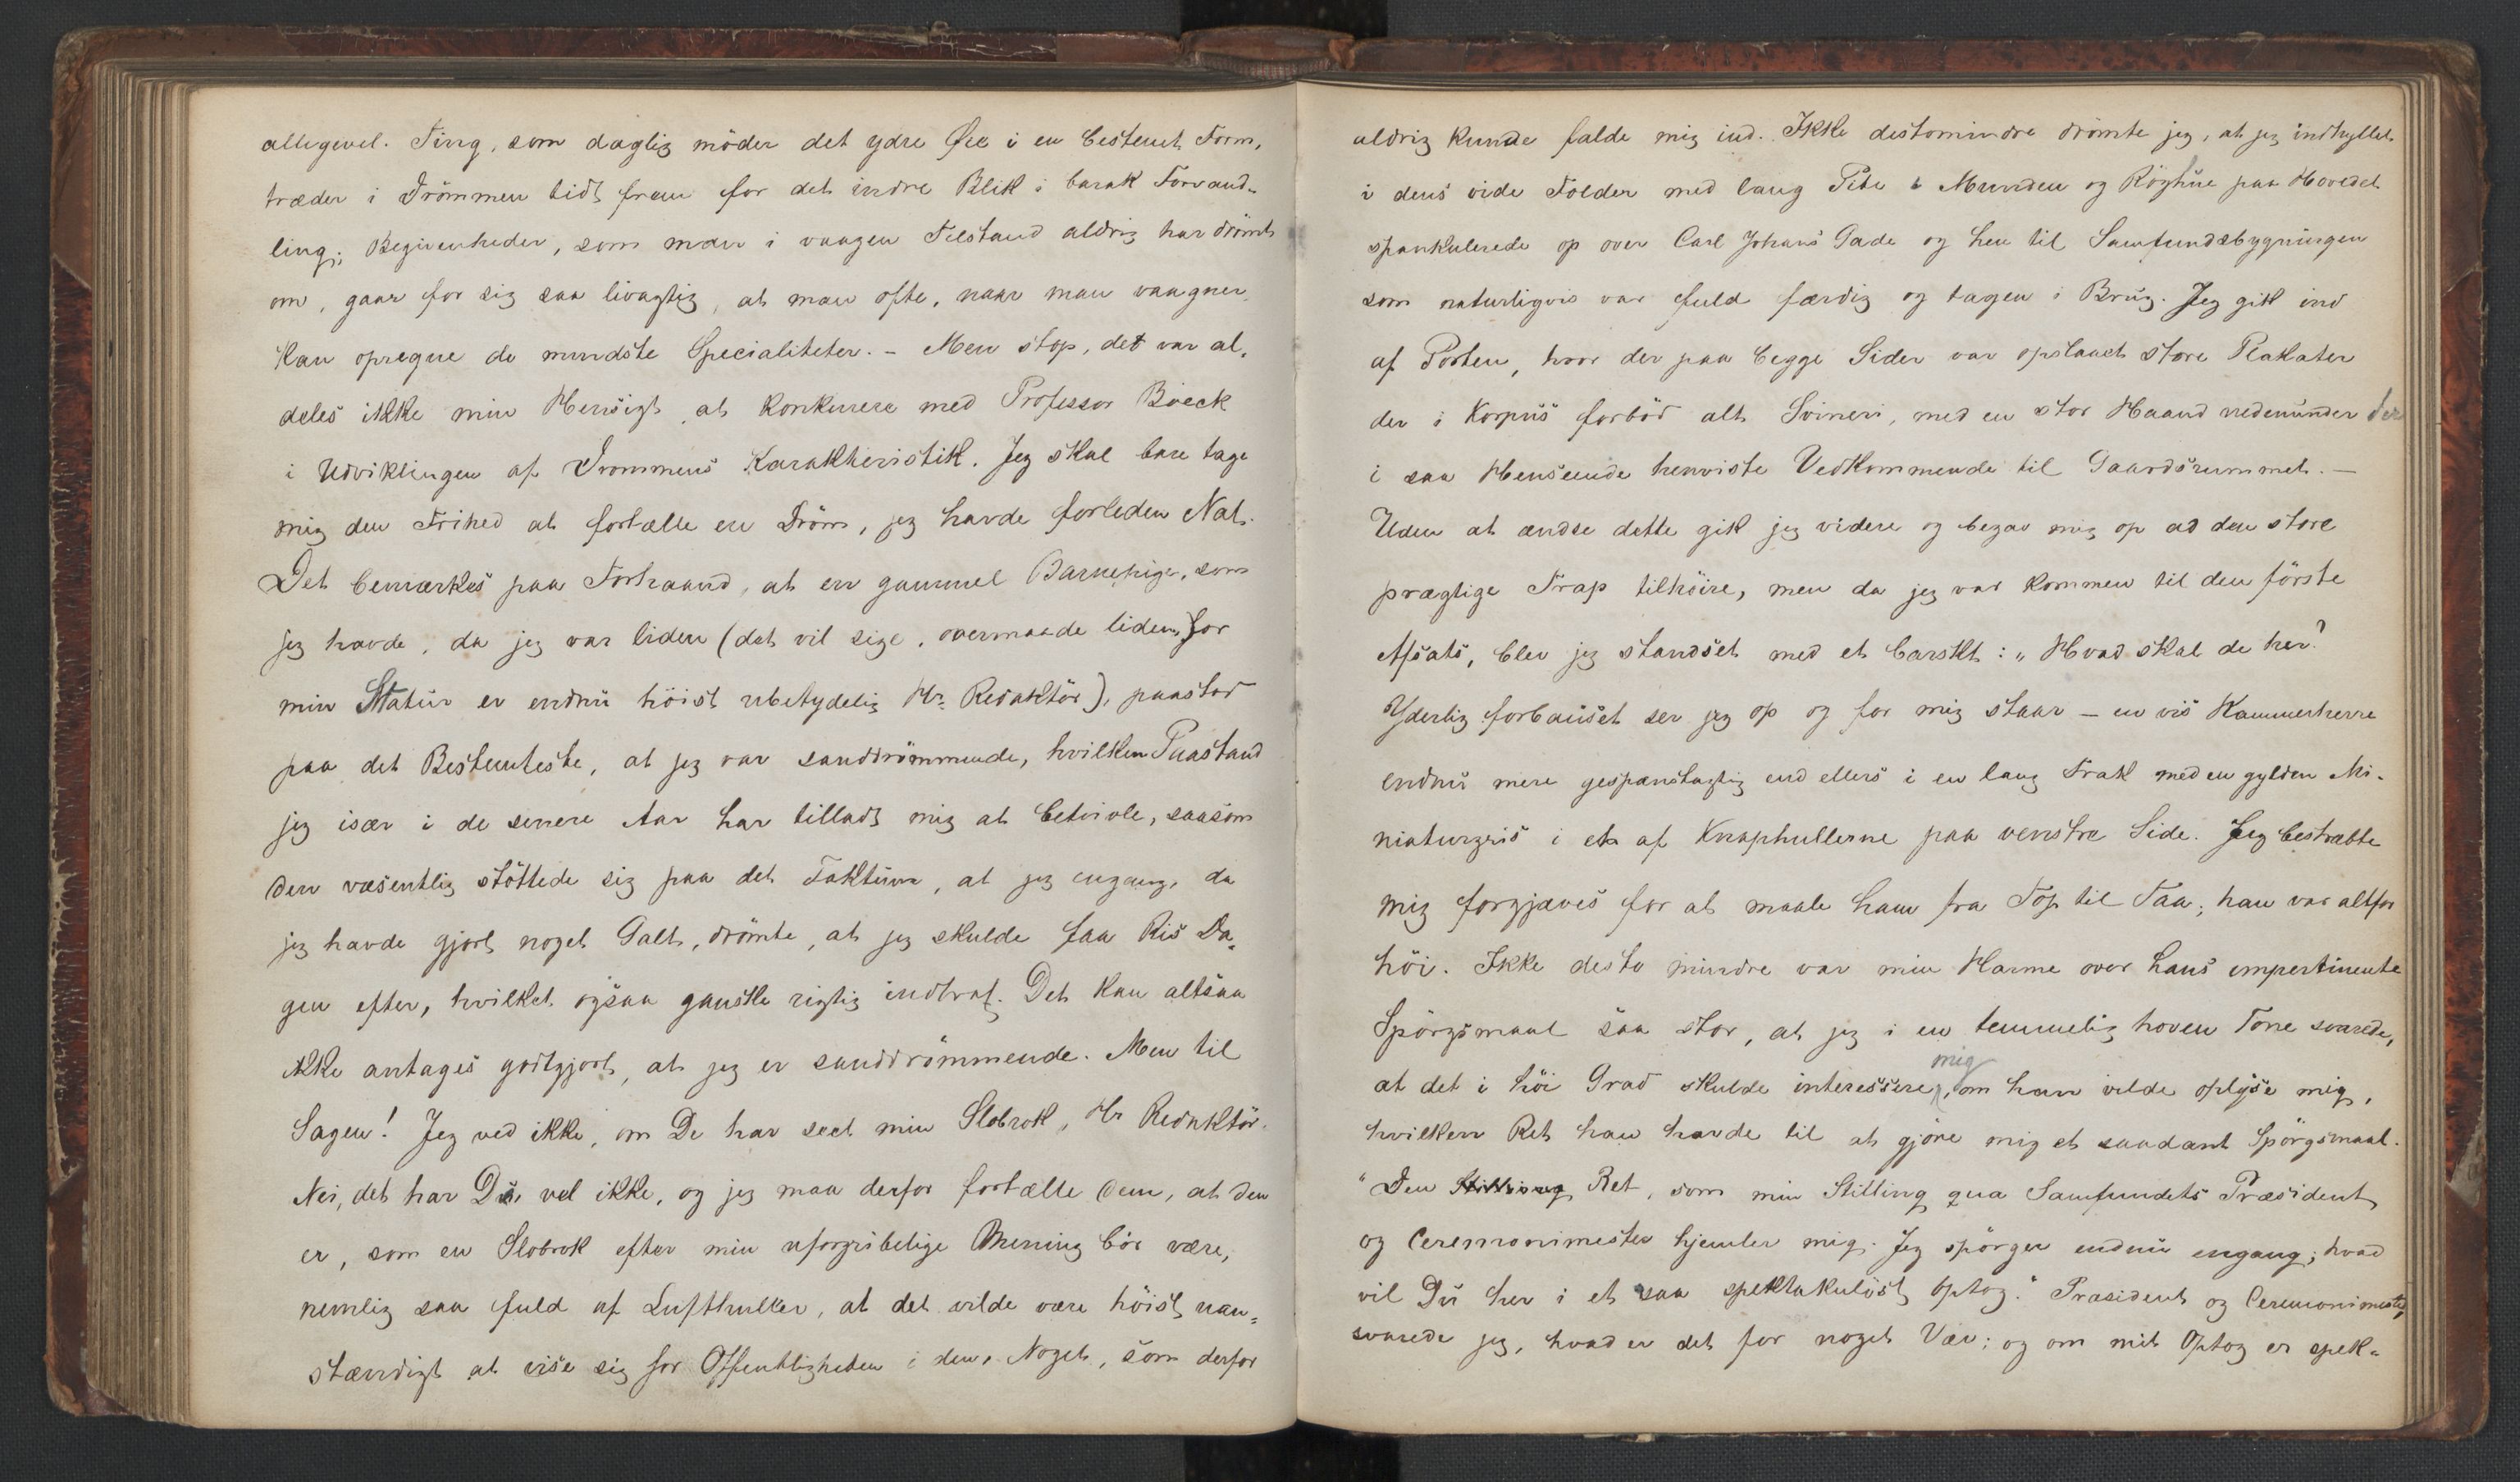 alligevel. Ting, som daglig möder det ydre Öie i en bestemt Form,
træder i Drömmen tidt frem for det indre Blik i barok Forvand-
ling; Begivenheder, som man i vaagen Tilstand aldrig har drömt
om, gaar for sig saa livagtig, at man ofte, naar man vaagner,
kan opregne de mindste Specialiteter. – Men stop, det var al-
deles ikke min Hensigt at konkurrere med Professor Boeck
i Udviklingen af Drømmens Karakteristik. Jeg skal bare tage
mig den Frihed at fortælle en Dröm, jeg havde forleden Nat.
Det bemærkes paa Forhaand, at en gammel Barnepige, som
jeg havde, da jeg var liden (det vil sige, overmaade liden, for
min Statur er endnu höist ubetydelig Hr. Redaktör), paastod
paa det Bestemteste, at jeg var sanddrömmende, hvilken Paastand
jeg især i de senere Aar har tilladt mig at betvivle, saasom
den væsentlig stöttede sig paa det Faktum, at jeg engang, da
jeg havde gjort noget Galt, drömte, at jeg skulde faa Ris Da-
gen efter, hvilket ogsaa ganske rigtig indtraf. Det kan altsaa
ikke antages godtgjort, at jeg er sanddrömmende. Men til
Sagen! Jeg ved ikke, om De har seet min Slobrok, Hr Redaktör.
Nei, det har De vel ikke, og jeg maa derfor fortælle Dem, at den
er, som en Slobrok efter min uforgribelige Mening bör være,
nemlig saa fuld af Lufthuller, at det vilde være höist uan-
stændigt at vise sig for Offentligheden i den, Noget, som derfor
aldrig kunde falde mig ind. Ikke destomindre drömte jeg, at jeg indhyllet
i dens vide Folder med lang Pibe i Munden og Röghue paa Hovedet
spankulerede op over Carl Johans Gade og hen til Samfundsbygningen
som naturligvis var fuld færdig og tagen i Brug. Jeg gik ind
af Porten, hvor der paa begge Sider var opslaaet store Plakater
der i Korpus forböd alt Svineri, med en stor Haand nedenunder der
i saa Henseende henviste Vedkommende til Gaardsrummet. –
Uden at ændse dette gik jeg videre og begav mig op ad den store
prægtige Trap tilhöire, men da jeg var kommen til den förste
Afsats, blev jeg standset med et barskt: "Hvad skal de her?
Yderlig forbauset ser jeg op og for mig staar – en vis Kammerherre
endnu mere gespenstagtig end ellers i en lang Frak med en gylden Mi-
niaturgris i et af Knaphullerne paa venstre Side. Jeg bestræbte
mig forgjæves for at maale ham fra Top til Taa; han var altfor
höi. Ikke desto mindre var min Harme over hans impertinente
Spörgsmaal saa stor, at jeg i en temmelig hoven Tone svarede,
at det i höi Grad skulde interessere mig, om han vilde oplyse mig,
hvilken Ret han havde til at gjöre mig et saadant Spörgsmaal.
"Den Stilling Ret, som min Stilling qua Samfundets Præsident
og Ceremonimester hjemler mig. Jeg spörger endnu engang; hvad
vil Du her i et saa spektakulöst Optog." Præsident og Ceremonimester,
svarede jeg, hvad er det for noget Vær; og om mit Optog er spek-